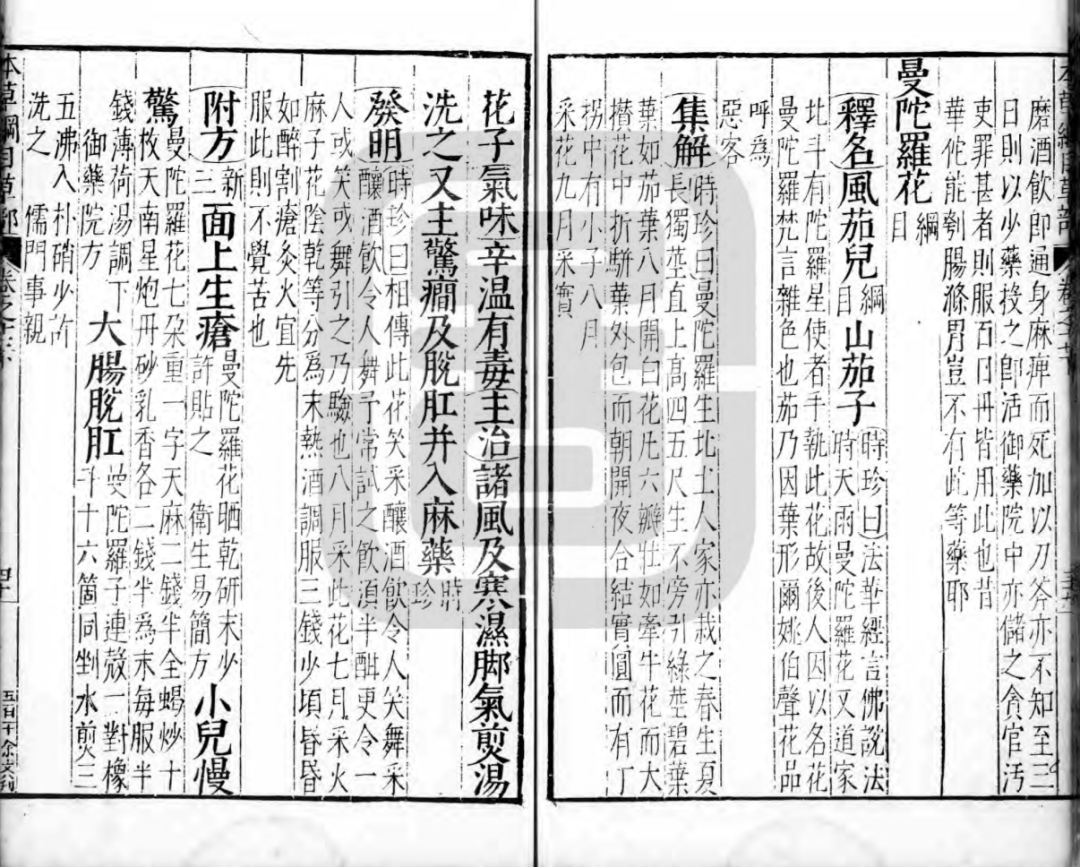 磨酒飲即通身麻痺而死加以刀斧亦不知至三
日則以少藥投之即活御藥院中亦儲之貪官汚
吏罪甚者則服百日丹皆用此也昔
華佗能刳腸滌胃豈不有此等藥耶
曼陀羅花綱目
釋名風茄兒綱目山茄子時珍曰法華經言佛說法
時天雨曼陀羅花又道家
北斗有陀羅星使者手執此花故後人因以名花
曼陀羅梵言雜色也茄乃因葉形爾姚伯聲花品
呼爲
惡客
集解時珍曰曼陀羅生北土人家亦栽之春生夏
長獨莖直上高四五尺生不旁引綠莖碧葉
葉如茄葉八月開白花凡六瓣壯如牽牛花而大
攢花中折駢葉外包而朝開夜合結實圓而有丁
拐中有小子八月
采花九月采實
花子氣味辛温有毒主治諸風及寒濕脚氣煎湯
洗之又主驚癇及脫肛并入麻藥時珍
發明時珍曰相傳此花笑采釀酒飲令人笑舞采
釀酒飲令人舞予常試之飲須半酣更令一
人或笑或舞引之乃驗也八月采此花七月采火
麻子花陰乾等分爲末熱酒調服三錢少頃昏昏
如醉割瘡灸火宜先
服此則不覺苦也
附方新三面上生瘡曼陀羅花晒乾研末少
許貼之　衛生易簡方小兒慢
驚曼陀羅花七朶重一字天麻二錢半全蝎炒十
枚天南星炮丹砂乳香各二錢半爲末每服半
錢薄荷湯調下
御藥院方大腸脫肛曼陀羅子連殼一對橡
斗十六箇同剉水煎三
五沸入朴硝少許
洗之　儒門事親